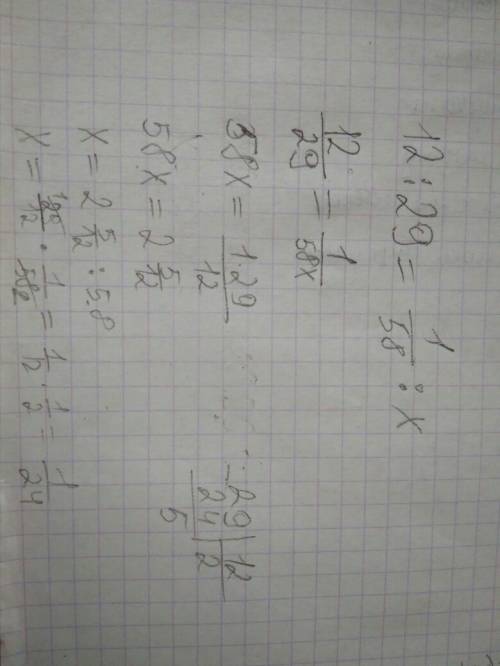 12:29 = 1/58 : x
12/29 = 1/58x
58x = 1·29/12
58x = 2 5/12
x = 2 5/12 : 58
x = 29/12 · 1/58 = 1/12 · 1/2 = 1/24
29 | 12
24 | 2
5